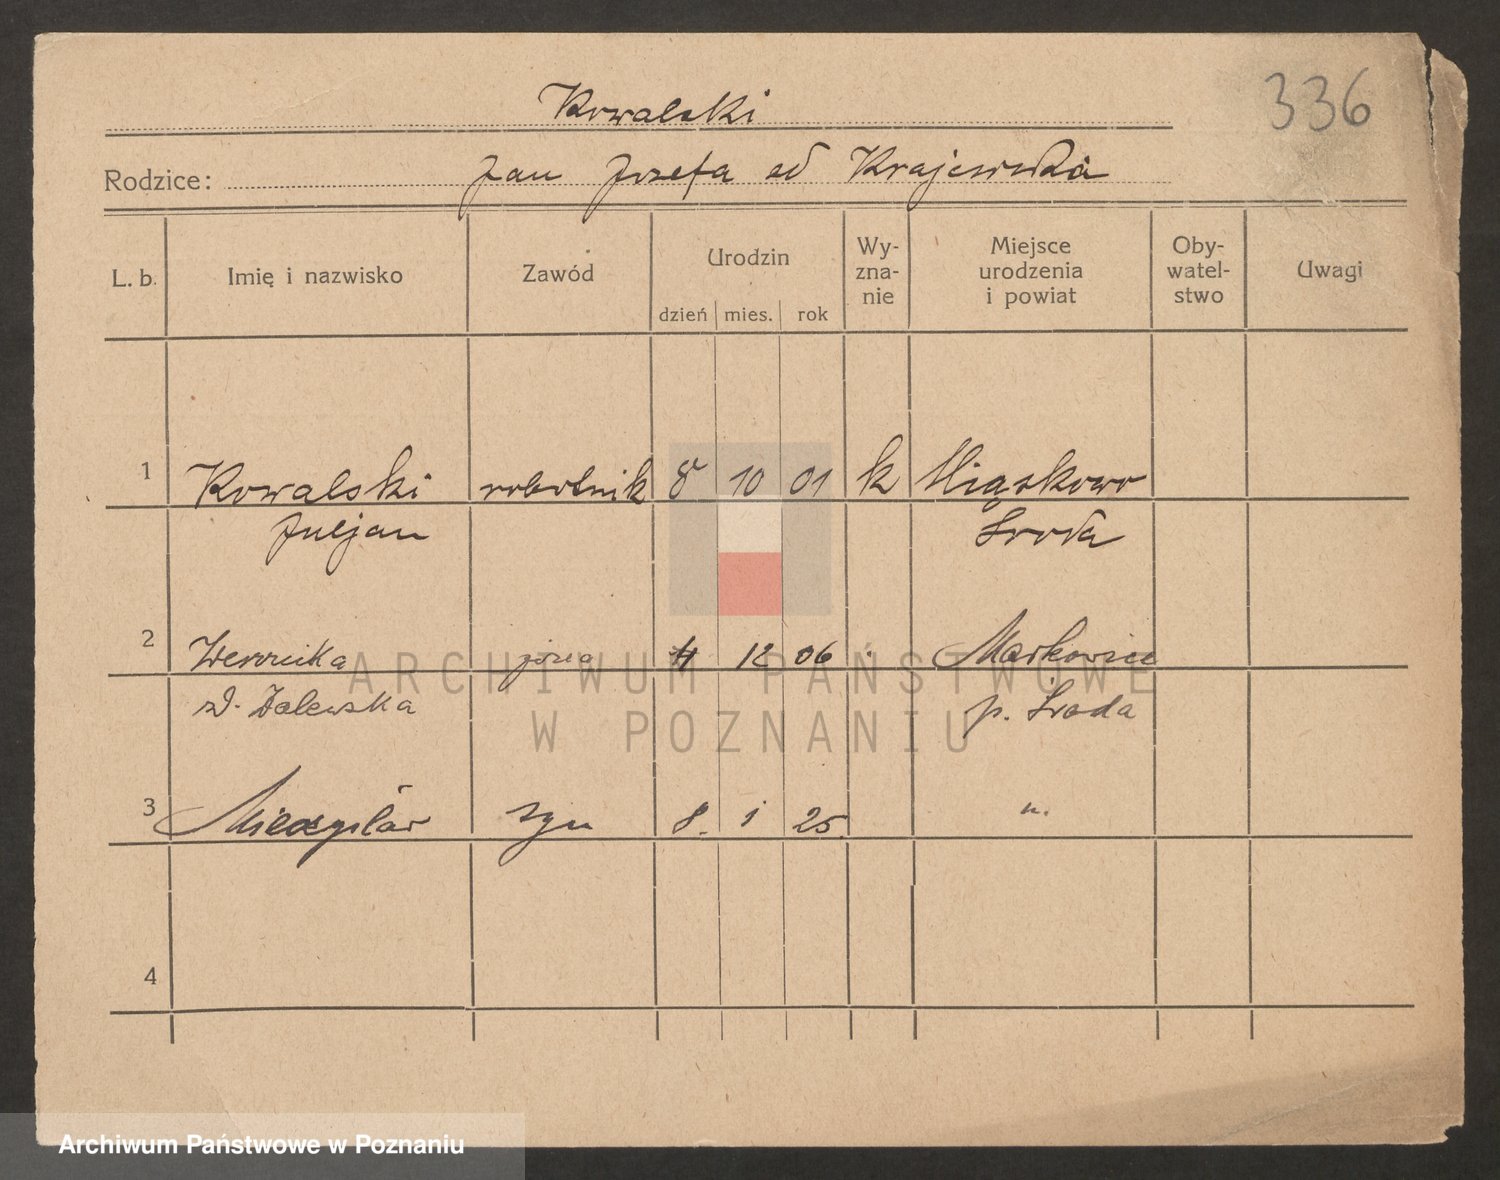 336
Kowalski
Rodzice: Jan Jozefa od Krajewska
L. b. Imię i nazwisko Zawód Urodzin Wy- Miejsce Oby- Uwagi
zna- urodzenia watel-
nie i powiat stwo
dzień mies. rok
1 Kowalski robotnik 8 10 01 k Miąskowo
Juljan Sroda
2 Weronika żona 4 12 06 Markowice
z d. Zalewska p. Środa
3 Mieczysław syn 8. 1 25. "
4
ARCHIWUM PAŃSTWOWE
W POZNANIU
Archiwum Państwowe w Poznaniu